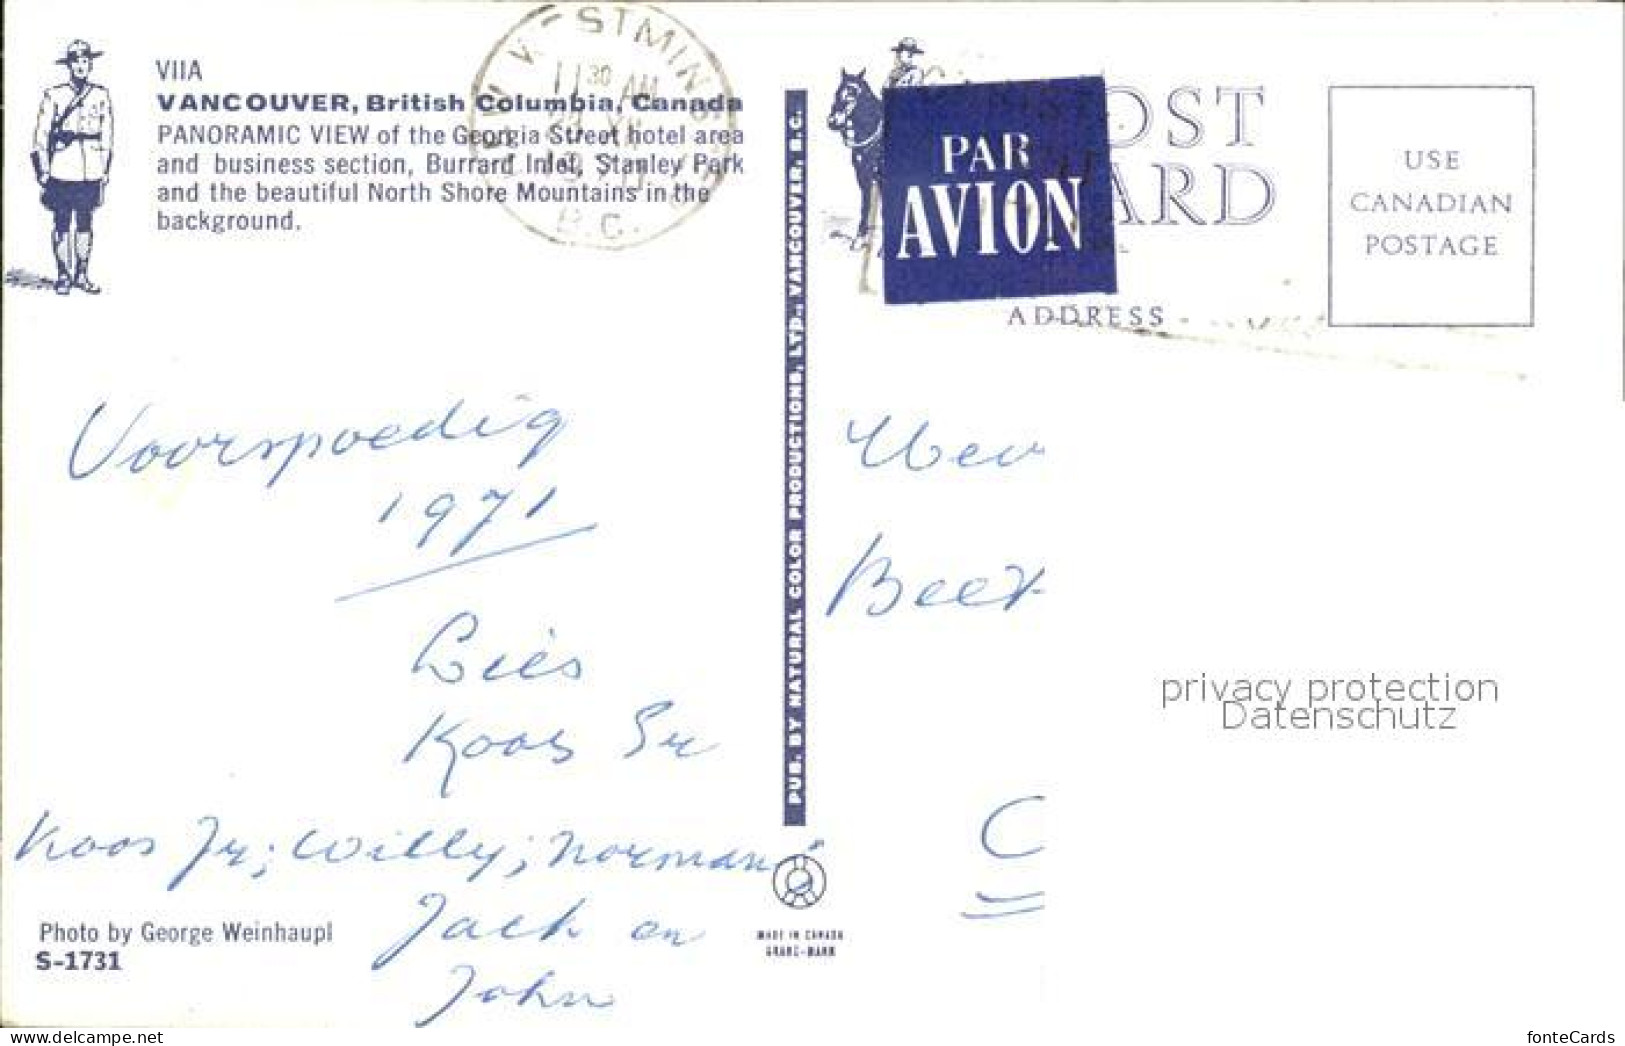 VIIA
VANCOUVER, British Columbia, Canada
PANORAMIC VIEW of the Georgia Street hotel area
and business section, Burrard Inlet, Stanley Park
and the beautiful North Shore Mountains in the
background.
STMINS
11 30 AM
B.C.
PUB. BY NATURAL COLOR PRODUCTIONS, LTD., VANCOUVER, B.C.
OST
ARD
PAR
AVION
ADDRESS
USE
CANADIAN
POSTAGE
Voorspoedig
1971
Lies
Koos Sr
Koos Jr; Willy; Norman;
Jack en
John
Beek
C
privacy protection
Datenschutz
Photo by George Weinhaupl
S-1731
MADE IN CANADA
GRANT-MANN
www.delcampe.net
fonteCards